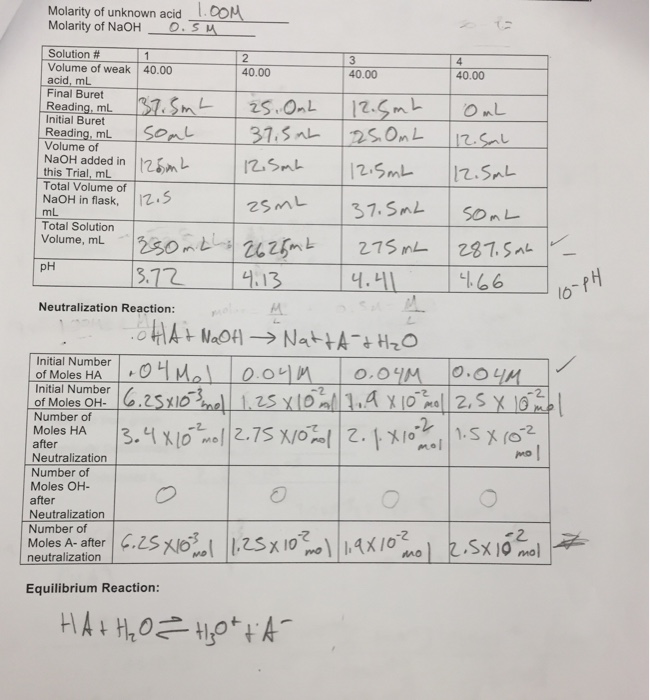 Molarity of unknown acid 1.00M
Molarity of NaOH 0.5M
Solution # 1 2 3 4
Volume of weak acid, mL 40.00 40.00 40.00 40.00
Final Buret Reading, mL 37.5mL 25.0mL 12.5mL 0mL
Initial Buret Reading, mL 50mL 37.5mL 25.0mL 12.5mL
Volume of NaOH added in this Trial, mL 12.5mL 12.5mL 12.5mL 12.5mL
Total Volume of NaOH in flask, mL 12.5 25mL 37.5mL 50mL
Total Solution Volume, mL 250mL 262.5mL 275mL 287.5mL
pH 3.72 4.13 4.41 4.66
10-pH
Neutralization Reaction:
HA + NaOH → Na+ + A- + H2O
Initial Number of Moles HA .04 Mol 0.04M 0.04M 0.04M
Initial Number of Moles OH- 6.25x10-3 mol 1.25x10-2 mol 1.9x10-2 mol 2.5x10-2 mol
Number of Moles HA after Neutralization 3.4x10-2 mol 2.75x10-2 mol 2.1x10-2 mol 1.5x10-2 mol
Number of Moles OH- after Neutralization 0 0 0 0
Number of Moles A- after neutralization 6.25x10-3 mol 1.25x10-2 mol 1.9x10-2 mol 2.5x10-2 mol
Equilibrium Reaction:
HA + H2O ⇌ H3O+ + A-